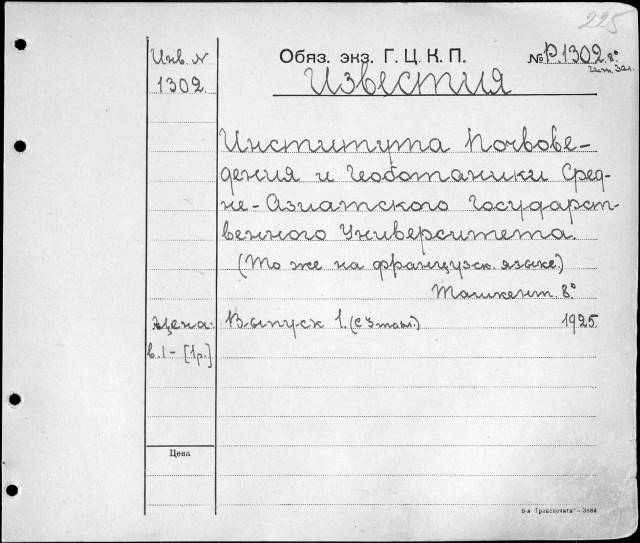 225
Инв. N
1302
Обяз. экз. Г. Ц. К. П.
№ Р.1302. 8°
чит. зал.
Известия
Института Почвове-
дения и Геоботаники Сред-
не-Азиатского Государст-
венного Университета.
(То же на французск. языке.)
Ташкент. 8°
Цена:
в. 1 – [1р.]
Выпуск 1. (с 3 табл.)
1925.
Цена
9-я Гравпечать – 3884